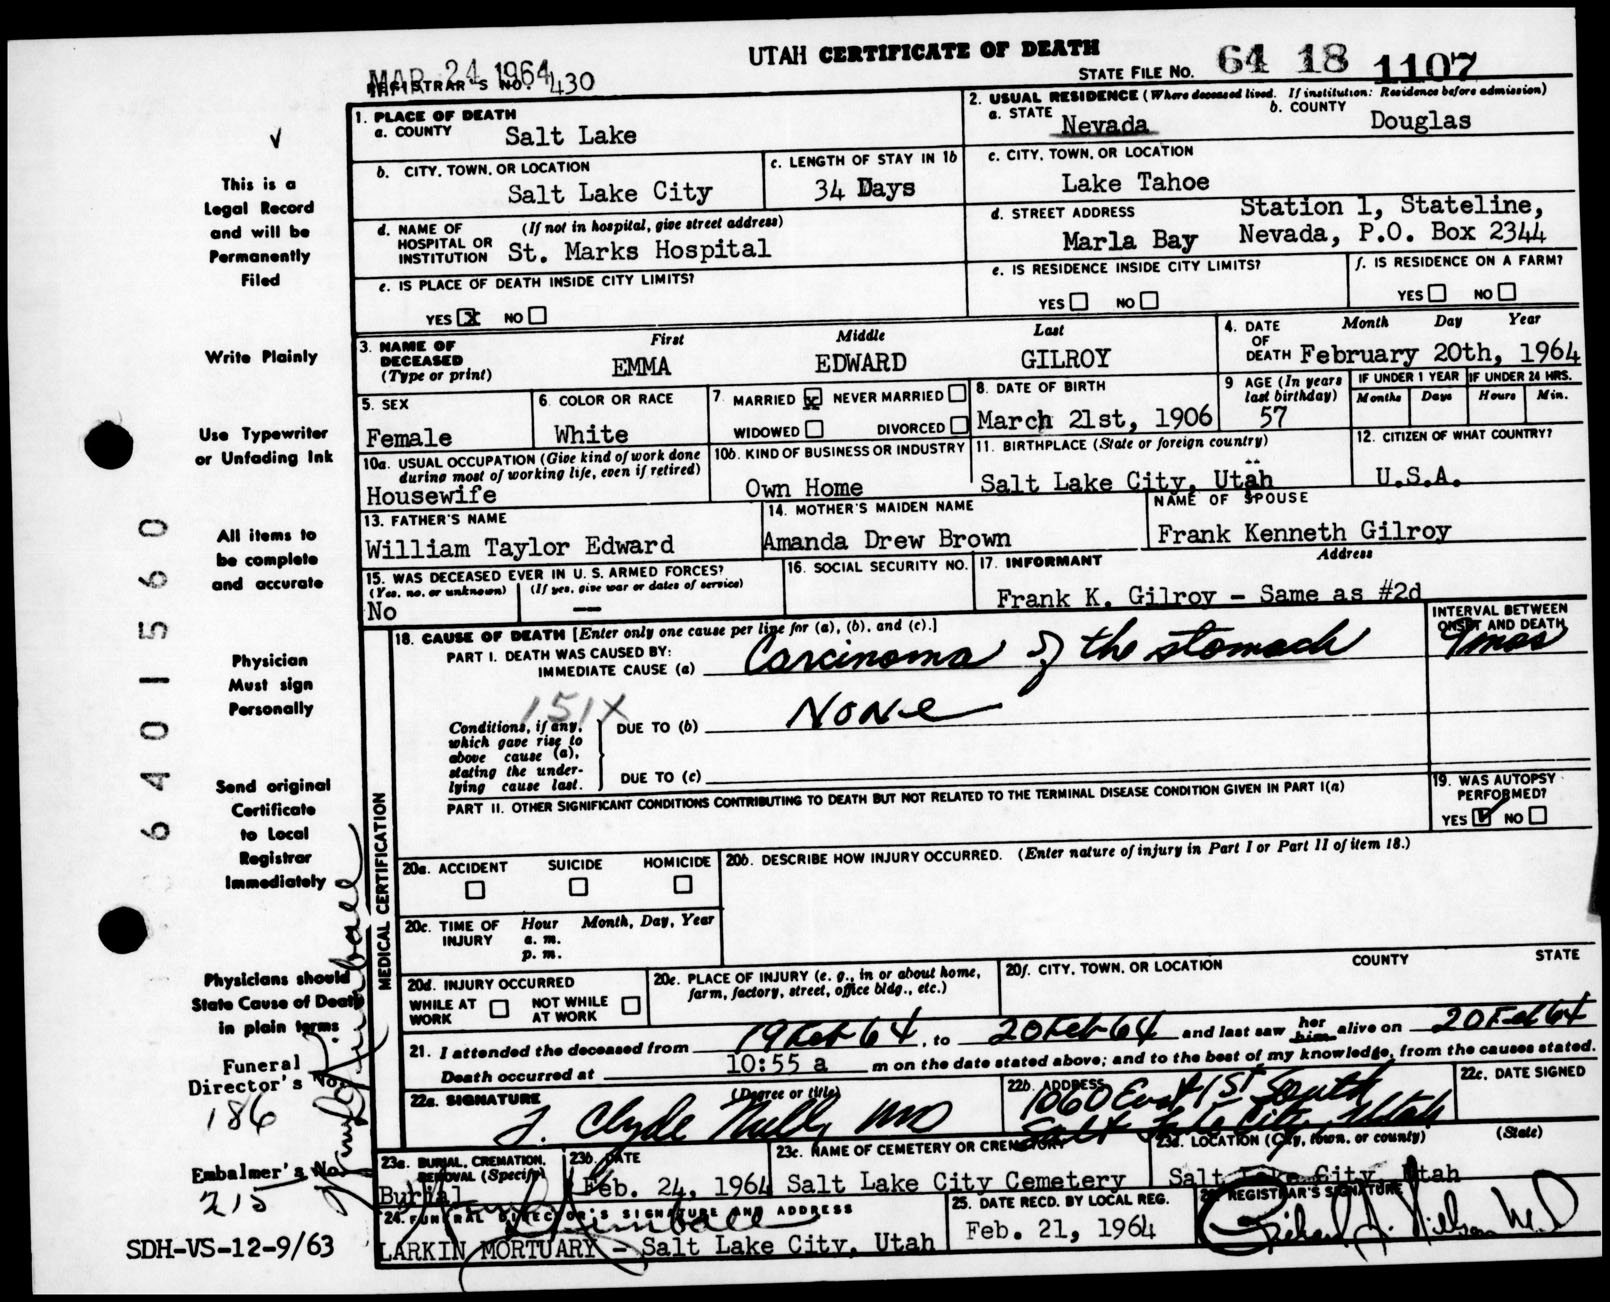 UTAH CERTIFICATE OF DEATH
MAR 24 1964
REGISTRAR'S NO. 430
STATE FILE NO. 64 18 1107
1. PLACE OF DEATH
a. COUNTY Salt Lake
2. USUAL RESIDENCE (Where deceased lived. If institution: Residence before admission)
a. STATE Nevada b. COUNTY Douglas
b. CITY, TOWN, OR LOCATION Salt Lake City
c. LENGTH OF STAY IN 1b 34 Days
c. CITY, TOWN, OR LOCATION Lake Tahoe
d. NAME OF HOSPITAL OR INSTITUTION (If not in hospital, give street address) St. Marks Hospital
d. STREET ADDRESS Marla Bay
Station 1, Stateline,
Nevada, P.O. Box 2344
e. IS PLACE OF DEATH INSIDE CITY LIMITS?
YES X NO
e. IS RESIDENCE INSIDE CITY LIMITS?
YES NO
f. IS RESIDENCE ON A FARM?
YES NO
3. NAME OF DECEASED (Type or print)
First Middle Last
EMMA EDWARD GILROY
4. DATE OF DEATH Month Day Year
February 20th, 1964
5. SEX Female
6. COLOR OR RACE White
7. MARRIED X NEVER MARRIED
WIDOWED DIVORCED
8. DATE OF BIRTH March 21st, 1906
9 AGE (In years last birthday) 57
IF UNDER 1 YEAR Months Days
IF UNDER 24 HRS. Hours Min.
10a. USUAL OCCUPATION (Give kind of work done during most of working life, even if retired)
Housewife
10b. KIND OF BUSINESS OR INDUSTRY
Own Home
11. BIRTHPLACE (State or foreign country)
Salt Lake City, Utah
12. CITIZEN OF WHAT COUNTRY?
U.S.A.
13. FATHER'S NAME
William Taylor Edward
14. MOTHER'S MAIDEN NAME
Amanda Drew Brown
NAME OF SPOUSE
Frank Kenneth Gilroy
15. WAS DECEASED EVER IN U. S. ARMED FORCES?
(Yes, no, or unknown) (If yes, give war or dates of service)
No —
16. SOCIAL SECURITY NO.
17. INFORMANT Address
Frank K. Gilroy - Same as #2d
18. CAUSE OF DEATH [Enter only one cause per line for (a), (b), and (c).]
INTERVAL BETWEEN ONSET AND DEATH
PART I. DEATH WAS CAUSED BY:
IMMEDIATE CAUSE (a) Carcinoma of the stomach 9 mos
151X
Conditions, if any, which gave rise to above cause (a), stating the underlying cause last.
DUE TO (b) None
DUE TO (c)
PART II. OTHER SIGNIFICANT CONDITIONS CONTRIBUTING TO DEATH BUT NOT RELATED TO THE TERMINAL DISEASE CONDITION GIVEN IN PART I(a)
19. WAS AUTOPSY PERFORMED?
YES ✓ NO
MEDICAL CERTIFICATION
20a. ACCIDENT SUICIDE HOMICIDE
20b. DESCRIBE HOW INJURY OCCURRED. (Enter nature of injury in Part I or Part II of item 18.)
20c. TIME OF INJURY Hour Month, Day, Year
a. m.
p. m.
20d. INJURY OCCURRED
WHILE AT WORK NOT WHILE AT WORK
20e. PLACE OF INJURY (e. g., in or about home, farm, factory, street, office bldg., etc.)
20f. CITY, TOWN, OR LOCATION COUNTY STATE
21. I attended the deceased from 19 Feb 64, to 20 Feb 64 and last saw her him alive on 20 Feb 64
Death occurred at 10:55 a m on the date stated above; and to the best of my knowledge, from the causes stated.
22a. SIGNATURE (Degree or title)
Clyde MD
22b. ADDRESS
1060 East 1st South
Salt Lake City, Utah
22c. DATE SIGNED
23a. BURIAL, CREMATION, REMOVAL (Specify)
Burial
23b. DATE
Feb. 24, 1964
23c. NAME OF CEMETERY OR CREMATORY
Salt Lake City Cemetery
23d. LOCATION (City, town, or county) (State)
Salt Lake City, Utah
24. FUNERAL DIRECTOR'S SIGNATURE AND ADDRESS
Kimball
LARKIN MORTUARY - Salt Lake City, Utah
25. DATE RECD. BY LOCAL REG.
Feb. 21, 1964
26. REGISTRAR'S SIGNATURE
Nielson M.D
This is a
Legal Record
and will be
Permanently
Filed
Write Plainly
Use Typewriter
or Unfading Ink
All items to
be complete
and accurate
Physician
Must sign
Personally
Send original
Certificate
to Local
Registrar
Immediately
Physicians should
State Cause of Death
in plain terms.
Funeral
Director's No.
186
Embalmer's No.
215
Kimball
6401560
SDH-VS-12-9/63